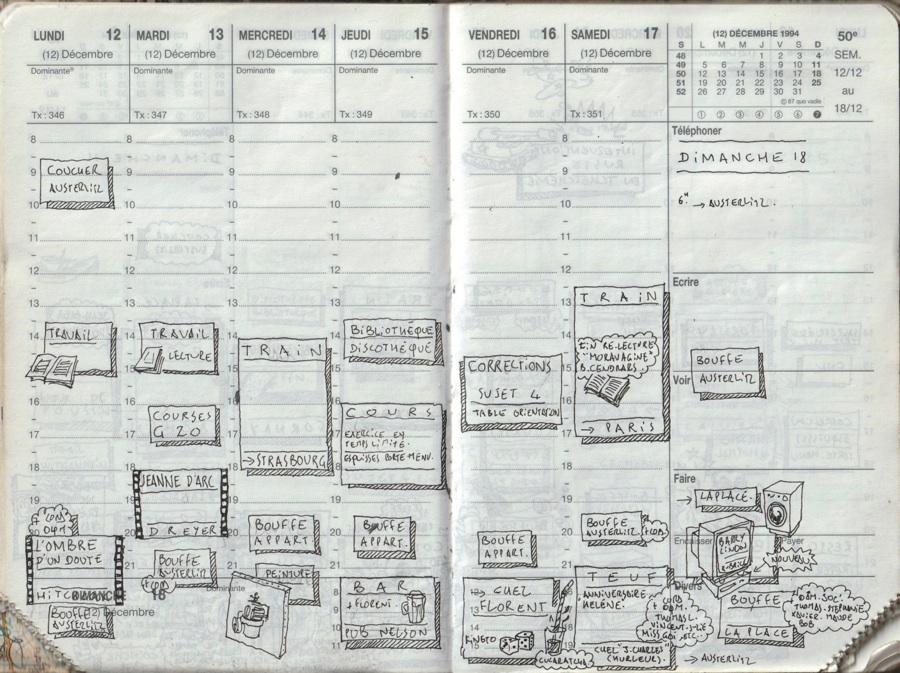 LUNDI 12
(12) Décembre
Dominante
Tx : 346
8
9
COUCHER
AUSTERLITZ
10
11
12
13
14
TRAVAIL
15
16
17
18
19
20
L'OMBRE
D'UN DOUTE
HITC
21
BOUFFE
AUSTERLITZ
MARDI 13
(12) Décembre
Dominante
Tx : 347
TRAVAIL
LECTURE
COURSES
G 20
JEANNE D'ARC
DREYER
BOUFFE
AUSTERLITZ
MERCREDI 14
(12) Décembre
Dominante
Tx : 348
TRAIN
→ STRASBOURG
BOUFFE
APPART.
PEINTURE
JEUDI 15
(12) Décembre
Dominante
Tx : 349
BIBLIOTHÉQUE
DISCOTHÉQUE
COURS
EXERCICE EN
TEMPS LIMITÉ.
BOUFFE
APPART.
BAR
+ FLORENT.
PUB NELSON
VENDREDI 16
(12) Décembre
Dominante
Tx : 350
CORRECTIONS
SUJET 4
TABLE ORIENTATION
BOUFFE
APPART.
→ CHEZ
FLORENT
CUCARATCHA
SAMEDI 17
(12) Décembre
Dominante
Tx : 351
TRAIN
FIN RE-LECTURE
"MORAVAGINE"
B. CENDRARS.
→ PARIS
BOUFFE
AUSTERLITZ
TEUF
ANNIVERSAIRE
HELÈNE.
THOMAS L.
CHEZ "J. CHARLES"
(HURLEUR).
(12) DÉCEMBRE 1994
S L M M J V S D
48 1 2 3 4
49 5 6 7 8 9 10 11
50 12 13 14 15 16 17 18
51 19 20 21 22 23 24 25
52 26 27 28 29 30 31
© 87 quo vadis
1 2 3 4 5 6 7
50e
SEM.
12/12
au
18/12
Téléphoner
DIMANCHE 18
6H → AUSTERLITZ.
Ecrire
BOUFFE
Voir
AUSTERLITZ
Faire
→ LAPLACE.
Encaisser
Payer
BARRY
LINDON
NOUVEAU
Divers
BOUFFE
LA PLACE
THOMAS. STEPHANIE
XAVIER. MAUDE
BOB
→ AUSTERLITZ